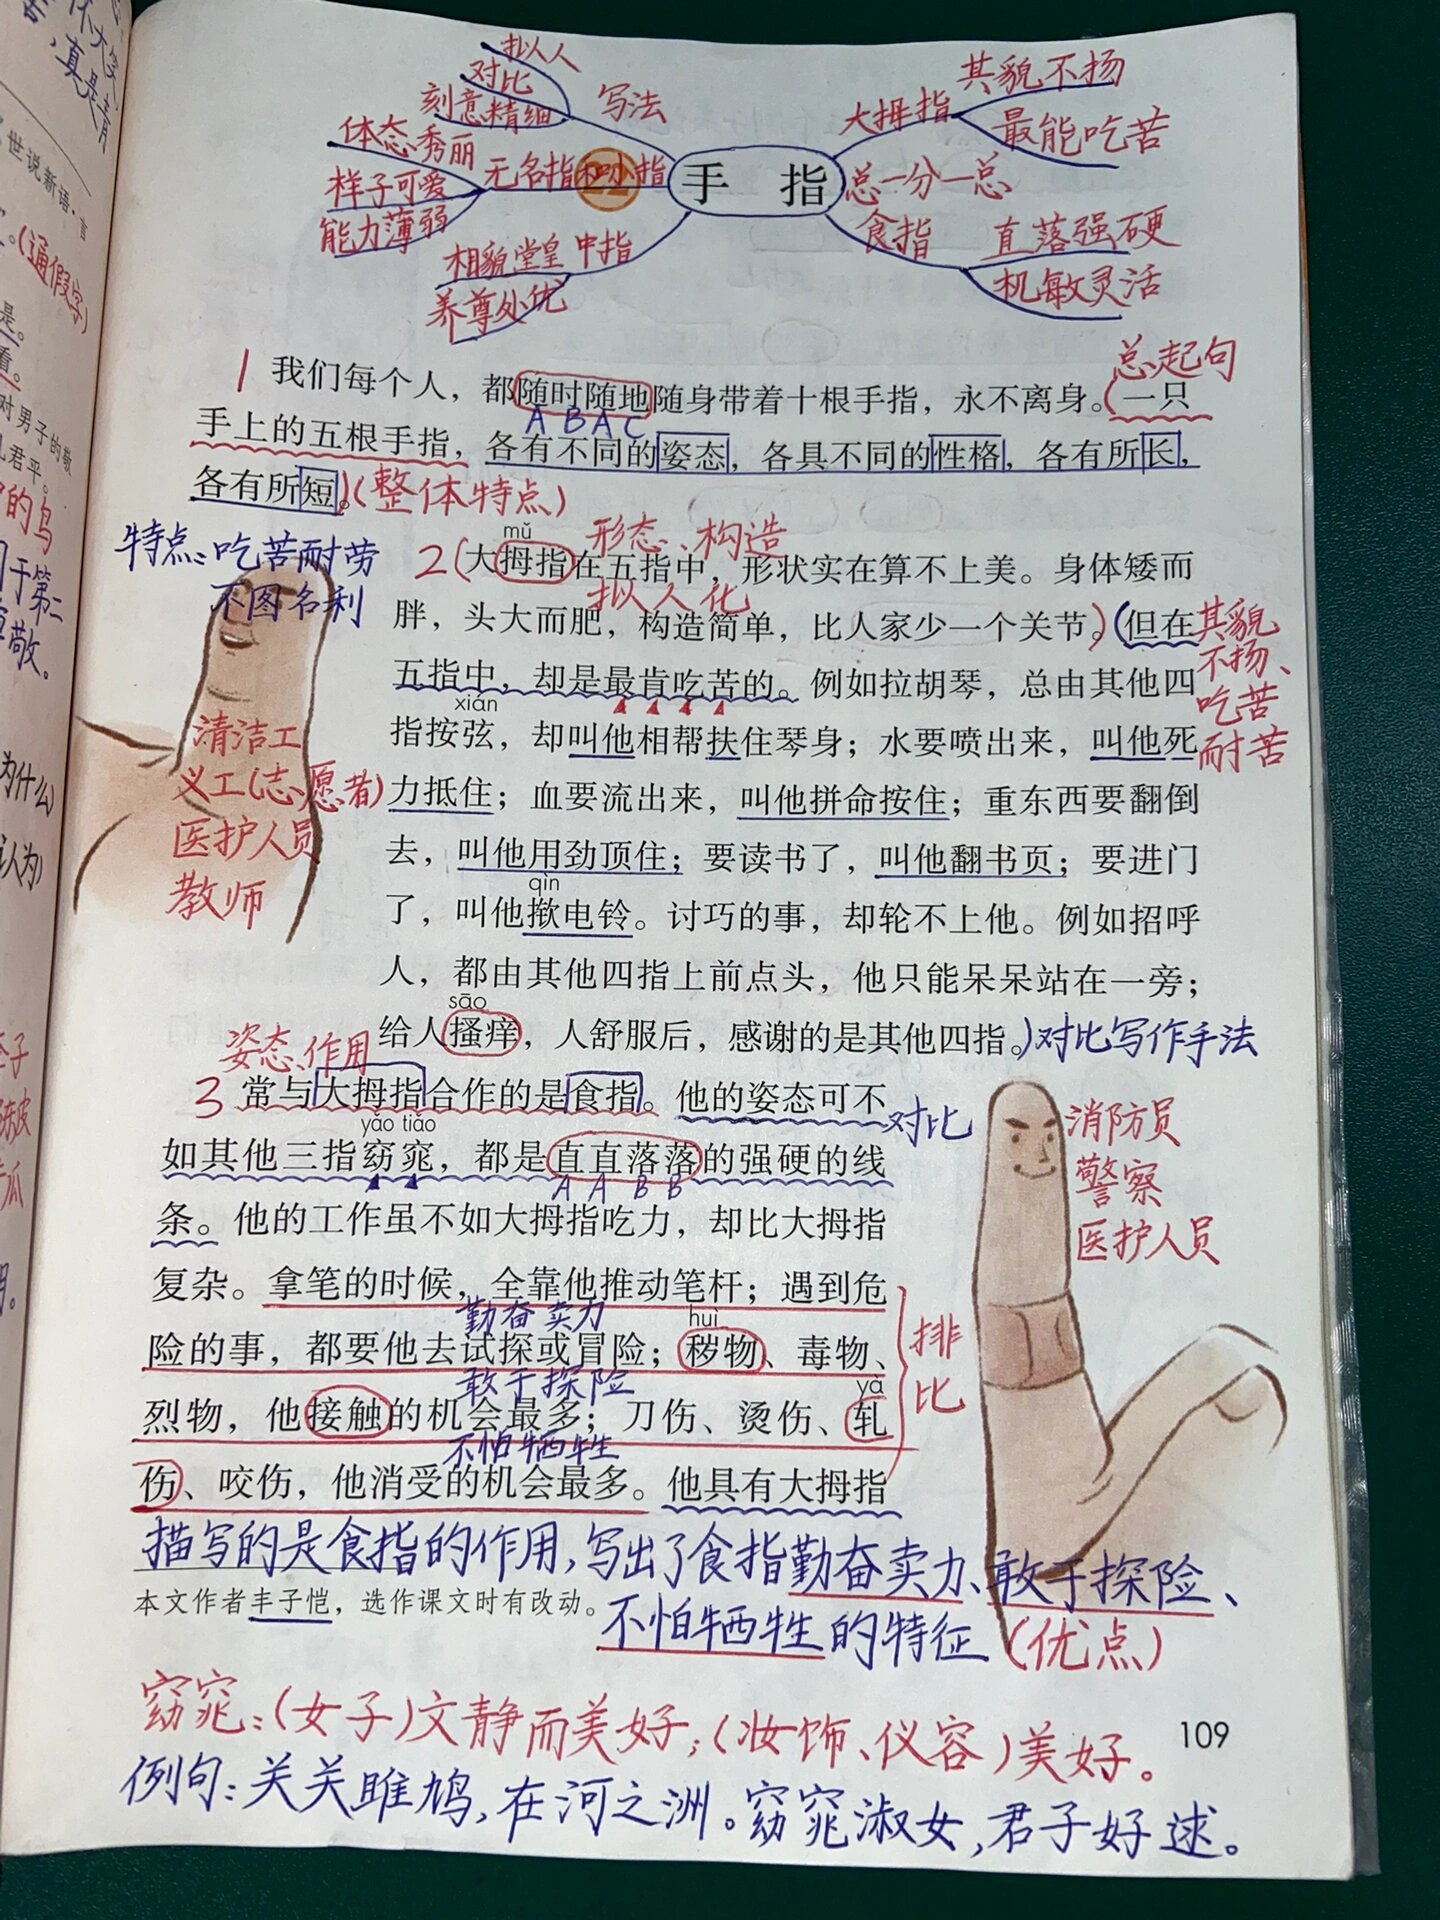 怀大笑
，真是青
世说新语·言
。(通假字)
是。
看。
对男子的敬
孔君平。
的鸟
于第二
敬。
为什么)
认为)
拟人
对比
刻意精细
写法
体态秀丽
样子可爱
能力薄弱
无名指和小指
相貌堂皇
养尊处优
中指
22
手 指
大拇指
其貌不扬
最能吃苦
总一分一总
食指
直落强硬
机敏灵活
总起句
1 我们每个人，都随时随地随身带着十根手指，永不离身。(一只
A B A C
手上的五根手指，各有不同的姿态，各具不同的性格，各有所长，
各有所短。)(整体特点)
特点：吃苦耐劳
不图名利
形态、构造
mǔ
2(大拇指在五指中，形状实在算不上美。身体矮而
拟人化
胖，头大而肥，构造简单，比人家少一个关节。)(但在
其貌
不扬、
吃苦
耐苦
五指中，却是最肯吃苦的。例如拉胡琴，总由其他四
xián
指按弦，却叫他相帮扶住琴身；水要喷出来，叫他死
力抵住；血要流出来，叫他拼命按住；重东西要翻倒
去，叫他用劲顶住；要读书了，叫他翻书页；要进门
qìn
了，叫他揿电铃。讨巧的事，却轮不上他。例如招呼
人，都由其他四指上前点头，他只能呆呆站在一旁；
sāo
给人搔痒，人舒服后，感谢的是其他四指。)对比写作手法
清洁工
义工(志愿者)
医护人员
教师
姿态、作用
3 常与大拇指合作的是食指。他的姿态可不
对比
yǎo tiǎo
如其他三指窈窕，都是直直落落的强硬的线
A A B B
条。他的工作虽不如大拇指吃力，却比大拇指
复杂。拿笔的时候，全靠他推动笔杆；遇到危
勤奋卖力
huì
险的事，都要他去试探或冒险；秽物、毒物、
敢于探险
yà
烈物，他接触的机会最多；刀伤、烫伤、轧
不怕牺牲
伤、咬伤，他消受的机会最多。他具有大拇指
排比
消防员
警察
医护人员
描写的是食指的作用，写出了食指勤奋卖力、敢于探险、
本文作者丰子恺，选作课文时有改动。
不怕牺牲的特征(优点)
窈窕：(女子)文静而美好；(妆饰、仪容)美好。
109
例句：关关雎鸠，在河之洲。窈窕淑女，君子好逑。